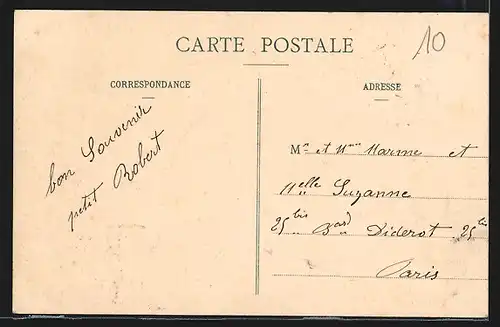 CARTE POSTALE
10
CORRESPONDANCE
bon Souvenir
petit Robert
ADRESSE
Mr et Mme Marme et
Melle Suzanne
25bis Bard Diderot 25bis
Paris